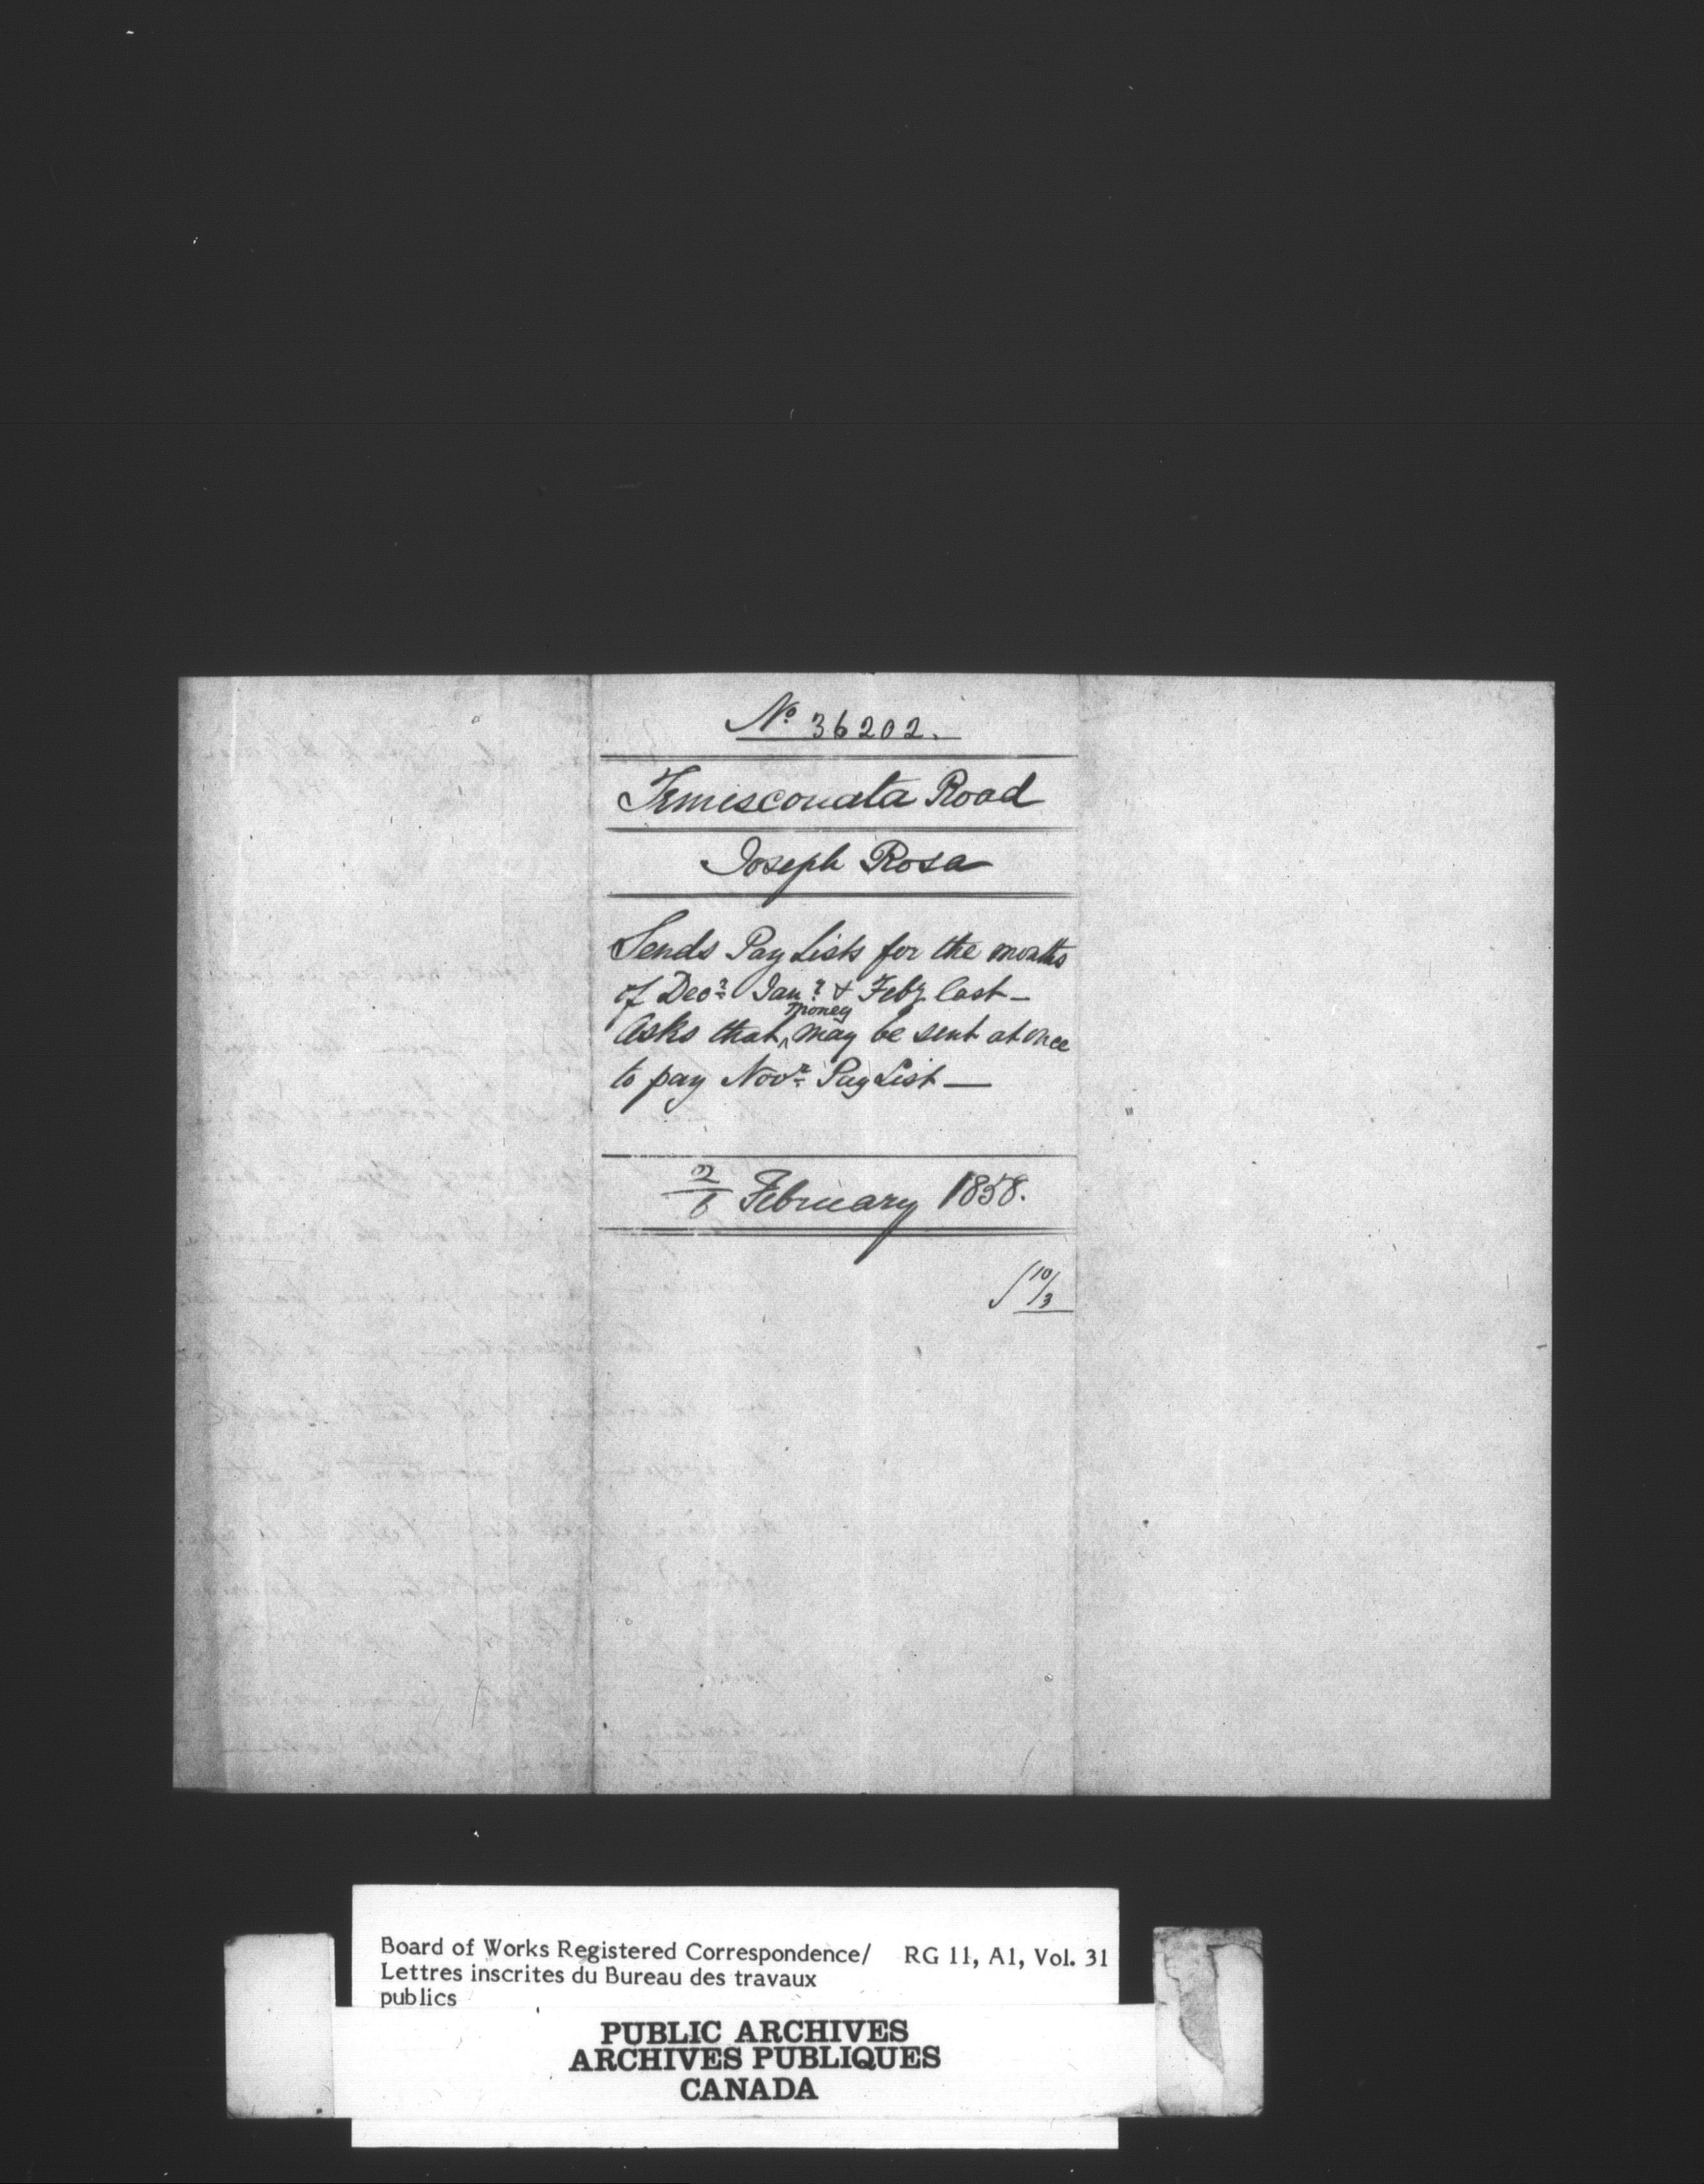 No 36202.
Temiscouata Road
Joseph Rosa
Sends Pay Lists for the months
of Decr Jany & Feby last —
Asks that money may be sent at once
to pay Novr Pay List —
February 1858.
10/3
Board of Works Registered Correspondence/ RG 11, A1, Vol. 31
Lettres inscrites du Bureau des travaux
publics
PUBLIC ARCHIVES
ARCHIVES PUBLIQUES
CANADA